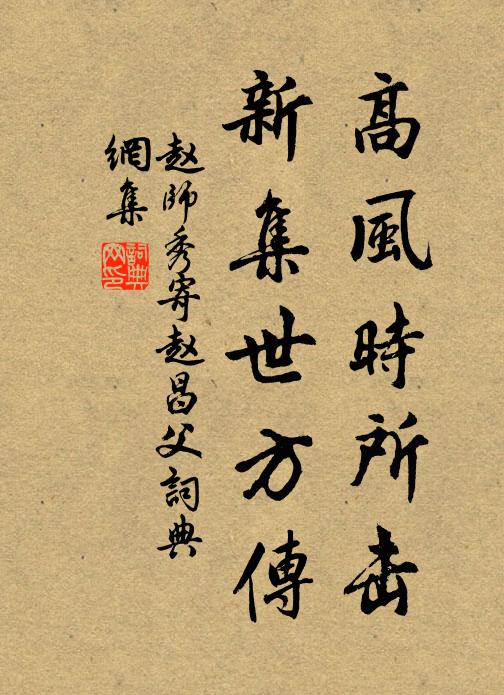 高風時所击
新集世方傳
赵師秀寄赵昌父詞典
網集
詞典
网印